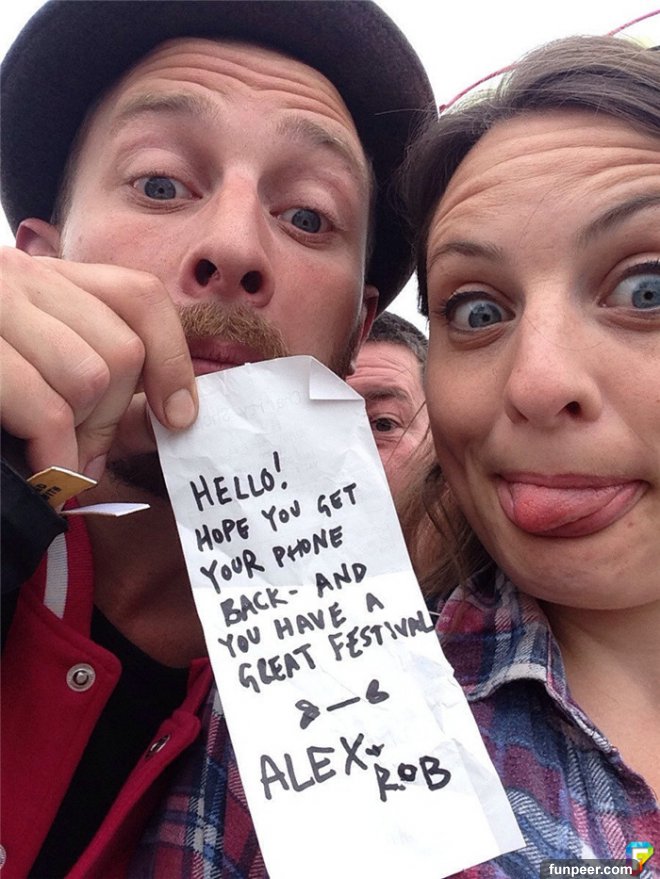 HELLO!
HOPE YOU GET
YOUR PHONE
BACK- AND
YOU HAVE A
GREAT FESTIVAL
ALEX+
ROB
funpeer.com